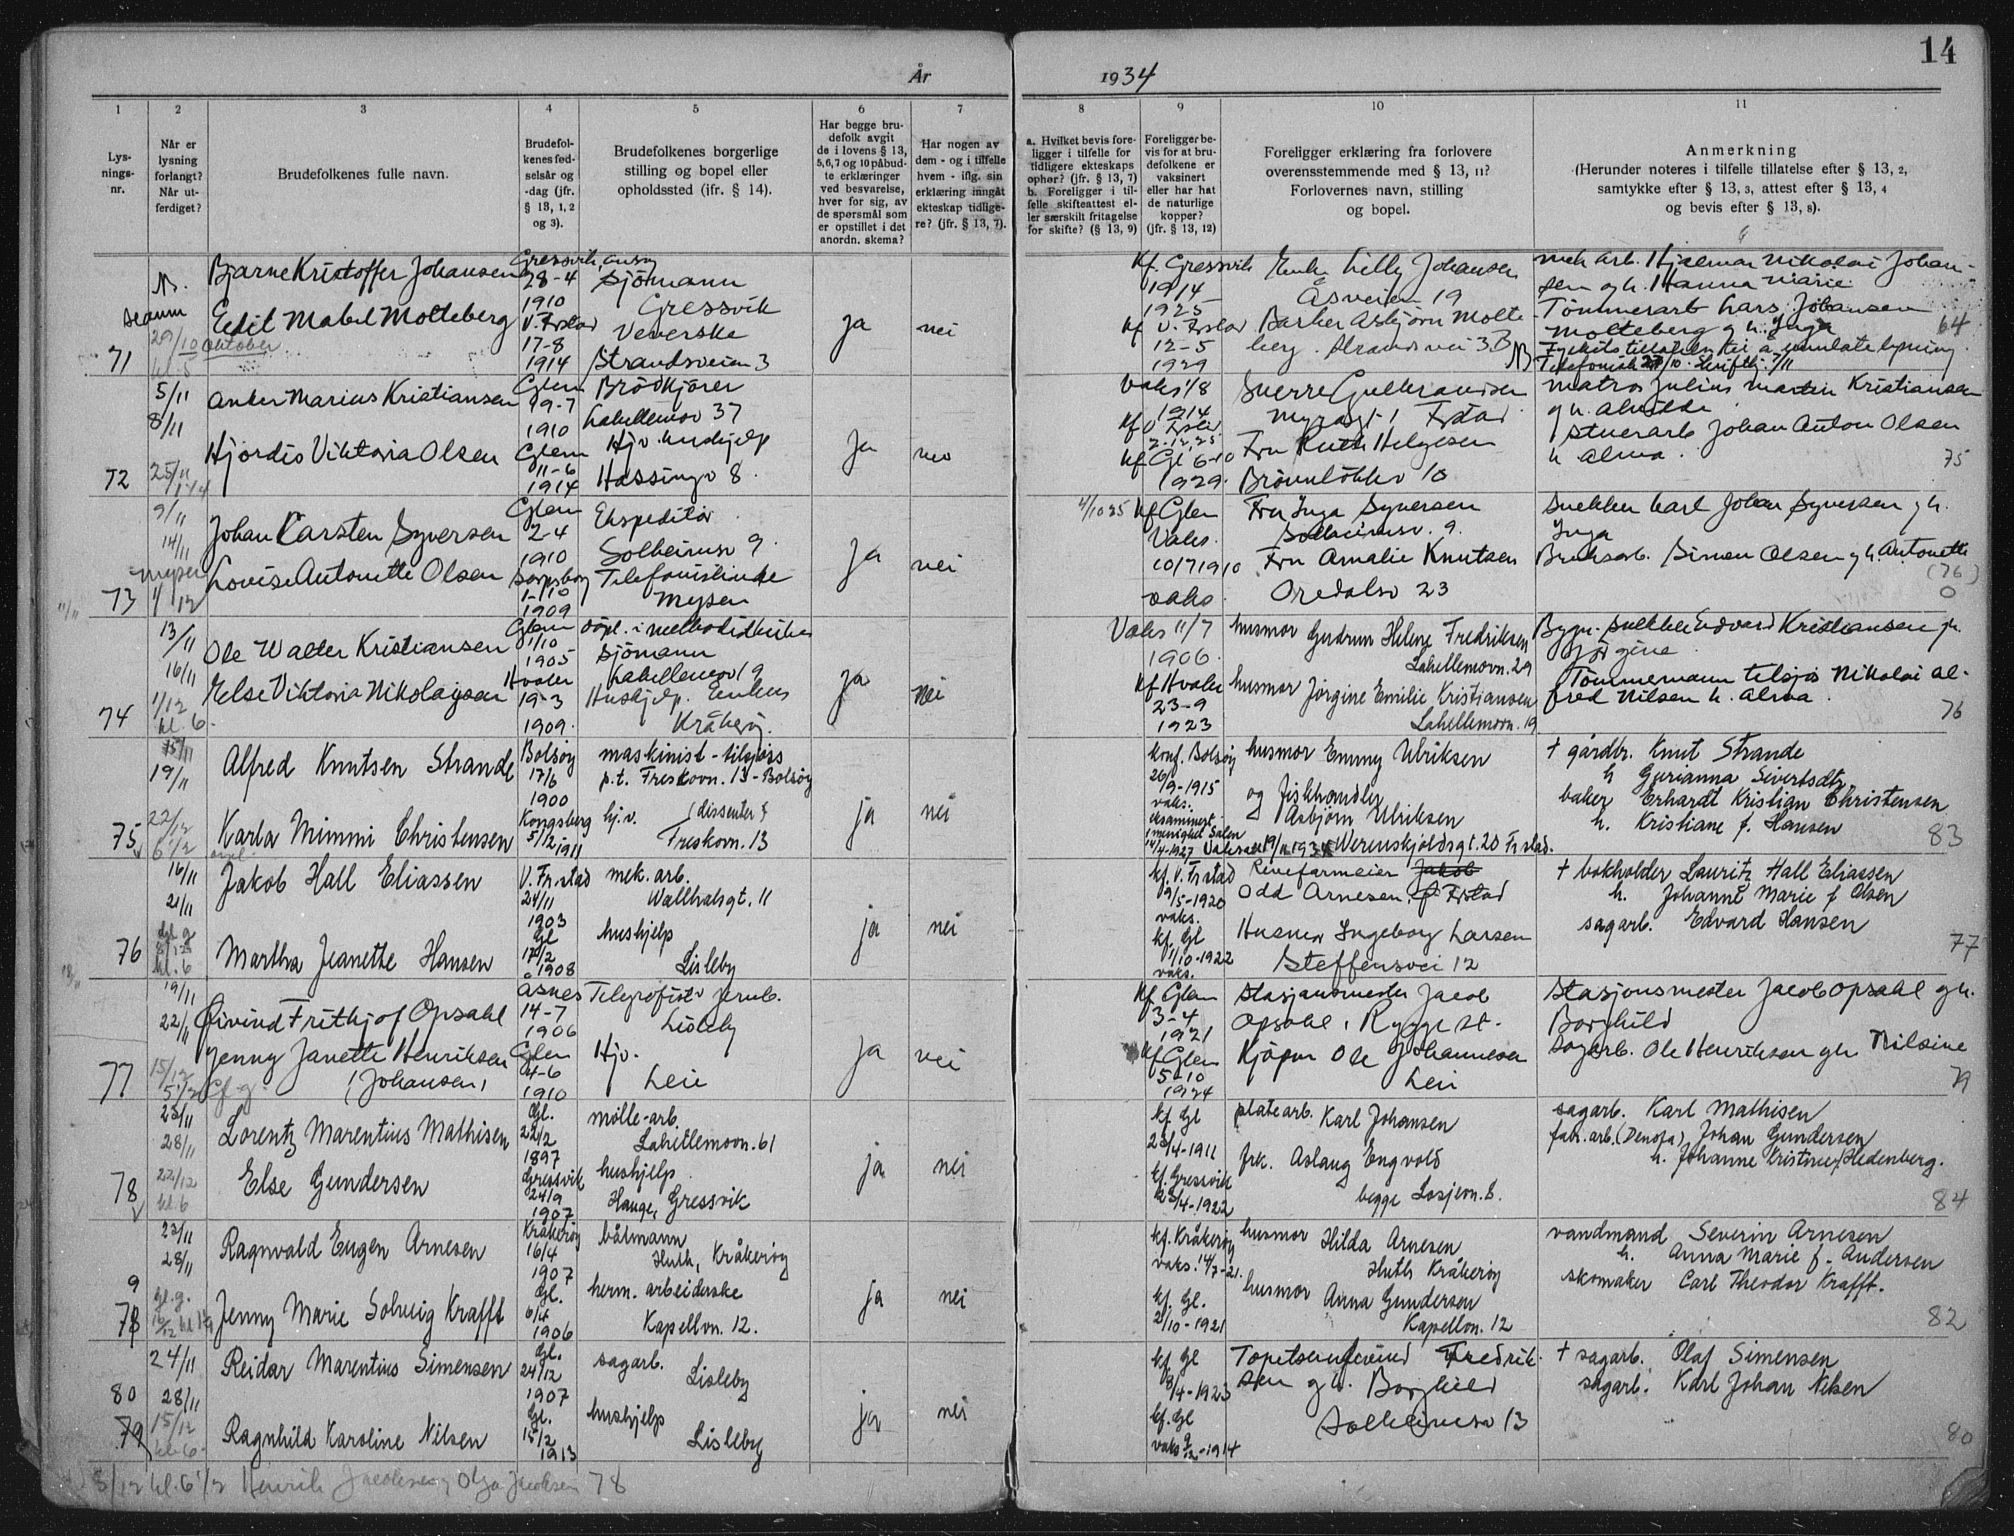 14
År 1934
1
Lys-
nings-
nr.
2
Når er
lysning
forlangt?
Når ut-
ferdiget?
3
Brudefolkenes fulle navn.
4
Brudefol-
kenes fød-
selsår og
-dag (jfr.
§ 13, 1, 2
og 3).
5
Brudefolkenes borgerlige
stilling og bopel eller
opholdssted (ifr. § 14).
6
Har begge bru-
defolk avgit
de i lovens § 13,
5, 6, 7 og 10 påbud-
te erklæringer
ved besvarelse,
hver for sig, av
de spørsmål som
er opstillet i det
anordn. skema?
7
Har nogen av
dem - og i tilfelle
hvem - iflg. sin
erklæring inngått
ekteskap tidlige-
re? (jfr. § 13, 7).
8
a. Hvilket bevis fore-
ligger i tilfelle for
tidligere ekteskaps
ophør? (jfr. § 13, 7)
b. Foreligger i til-
felle skifteattest el-
ler særskilt fritagelse
for skifte? (§ 13, 9)
9
Foreligger be-
vis for at bru-
defolkene er
vaksinert
eller har hat
de naturlige
kopper?
(jfr. § 13, 12)
10
Foreligger erklæring fra forlovere
overensstemmende med § 13, 11?
Forlovernes navn, stilling
og bopel.
11
Anmerkning
(Herunder noteres i tilfelle tillatelse efter § 13, 2,
samtykke efter § 13, 3, attest efter § 13, 4
og bevis efter § 13, 8).
71
29/10 oktober
Bjarne Kristoffer Johansen
Edit Mabel Molteberg
Gressvik
28-4
1910
V. Frstad
17-8
1914
Sjömann
Gressvik
Veverske
Strandsveien 3
ja
nei
Kf. Gressvik
19/4
1925
Kf V. Frstad
12-5
1929
Enke Lilly Johansen
Åsveien 19
Barber Asbjörn Molte
berg. Strandsvei 3B
mek arb. Hjalmar Nikolai Johan-
sen og h. Hanna Marie.
Tömmerarb Lars Johansen
Molteberg g h. Inga
64
72
5/11
8/11
25/11
Anker Marius Kristiansen
Hjördis Viktoria Olsen
Glem
19-7
1910
Glem
11-6
1914
Brödkjörer
Lahellemov 37
Hjv. hushjelp
Hassingv 8.
ja
nei
Vaks 1/8
1914
Kf V. Frstad
2-12.25
Kf Gl. 6-10
1929.
Sverre Gulbrandsen
Myragt. 1 Frstad
Fru Ruth Helgesen
Brönnlökkv 10
Matros Julius Martin Kristiansen
g h. Alvilde
Stuerarb Johan Anton Olsen
h Alma.
75
73
9/11
14/11
Mysen
1/12
Johan Carsten Syversen
Lovise Antonette Olsen
Glem
2-4
1910
Sarpsborg
1-10
1909
Ekspeditör
Solheimsv 9.
Telefonistinde
Mysen
ja
nei
4/10 25
Kf Glem
Vaks.
10/7 1910
vaks.
Fru Inga Syversen
Solheimsv. 9.
Fru Amalie Knutsen
Oredalsv 23
Snekker Carl Johan Syversen g h.
Inga
Bruksarb. Simen Olsen g h. Antonette
(76)
0
74
13/11
16/11
1/12
kl. 6.
Ole Walter Kristiansen
Else Viktoria Nikolaysen
Glem
1/10
1905
Hvaler
19-3
1909.
döpt. i methodistkirken
Sjömann
Lahellemov 19
Hushjelp. Enhus
Kråkeröy.
ja
nei
Vaks 11/7
1906.
Kf Hvaler
23-9
1923
husmor Gudrun Helene Fredriksen
Lahellemovn. 29
husmor Jörgine Emilie Kristiansen
Lahellemovn. 19
Bygn. snekker Edvard Kristiansen g h.
Jörgine.
Tömmermann tilsjös Nikolai Al-
fred Nilsen h. Alma.
76
75
15/11
19/11
22/12
6 1/2
Alfred Knutsen Strande
Karla Mimmi Christensen
Bolsöy
17/6
1900
Kongsberg
5/12 1911
maskinist - tilsjøss
p.t. Freskovn. 13 - Bolsöy
hj. v. (dissenter)
Freskovn. 13
ja
nei
konf. Bolsöy
26/9-1915
vaks.
eksaminert
i menighet Salen
14/4-1927
husmor Emmy Ulriksen
og fiskhandler
Asbjörn Ulriksen
Werenskjoldsgt. 20 Fr.stad.
† gårdbr. Knut Strande
h Gurianna Sivertsdtr.
baker Erhardt Kristian Christensen
h. Kristiane f. Hansen
83
76
16/11
21/11
kl. 6
Jakob Hall Eliassen
Martha Jeanette Hansen
V. Fr.stad
24/11
1903
Gl
17/2
1908
mek. arb.
Wallhalsgt. 11
hushjelp
Lisleby
ja
nei
kf. V. Fr stad
9/5-1920
vaks.
kf. Gl
1/10-1922
vaks.
Revefarmeier Jakob
Odd Arnesen, Frstad
Husmor Ingeborg Larsen
Steffensvei 12
† bokholder Lauritz Hall Eliassen
h. Johanne Marie f Olsen
sagarb. Edvard Hansen
77
77
19/11
22/11
15/12
5 1/2
Øivind Frithjof Opsahl
Jenny Janette Henriksen
(Johansen)
Åsnes
14-7
1906
Glem
4-6
1910
Telegrafist v jernb.
Lisleby
Hjv.
Leie
ja
nei
Kf Glem
3-4
1921
Kf Glem
5-10
1924
Stasjonsmester Jacob
Opsahl, Rygge st.
Kjöpm Ole Johannesen
Leie
Stasjonsmester Jacob Opsahl g h.
Borghild
Sagarb. Ole Henriksen g h. Nilsine
79
78
23/11
28/11
22/12
kl. 6
Lorentz Marentius Mathisen
Else Gundersen
Gl.
22/2
1897
Gressvik
24/9
1907
mølle-arb.
Lahellemovn. 61
hushjelp.
Hauge, Gressvik
ja
nei
kf. Gl
23/4-1911
kf. Gressvik
23/4-1922
platearb. Karl Johansen
frk. Aslaug Engvold
begge Losjevn. 8.
sagarb. Karl Mathisen
fabr. arb. (Denofa) Johan Gundersen
h. Johanne Kristine f Hedenberg.
84
9
78
23/11
28/11
Ragnvald Eugen Arnesen
Jenny Marie Solveig Krafft
Kråkeröy
16/4
1907
Gl.
6/4
1906
båtmann
Huth, Kråkeröy
herm. arbeiderske
Kapellvn. 12.
ja
nei
kf. Kråkeröy
vaks. 14/7-21.
kf. Gl.
2/10-1921
husmor Hilda Arnesen
Huth Kråkeröy
husmor Anna Gundersen
Kapellvn. 12
vandmand Severin Arnesen
h. Anna Marie f. Andersen
skomaker Carl Theodor Krafft.
82
80
79
24/11
28/11
15/12
kl. 6.
Reidar Marentius Simensen
Ragnhild Karoline Nilsen
Gl.
24/12
1907
Gl.
15/2
1913
sagarb.
Lisleby
hushjelp
Lisleby
ja
nei
kf. Gl
8/4-1923
kf. Gl
vaks 9/12-1914
Tapetserersvend Fredrik-
sen g h. Borghild
Solheimsv 13
† sagarb. Olaf Simensen
sagarb. Karl Johan Nilsen
80
8/12 kl. 6 1/2 Henrik Jacobsen, Olga Jacobsen 78